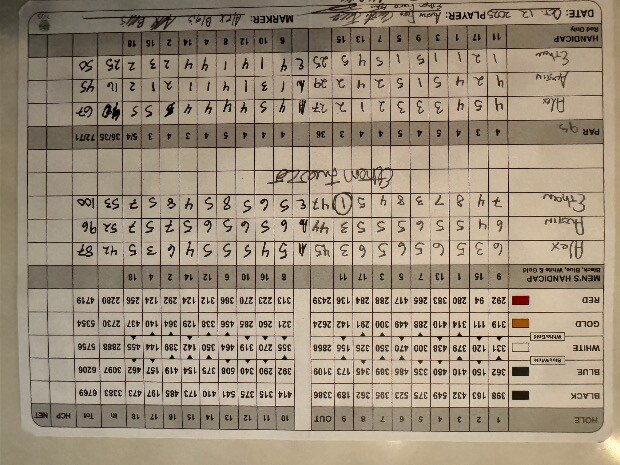 HOLE 1 2 3 4 5 6 7 8 9 OUT 10 11 12 13 14 15 16 17 18 In Tot HCP NET
BLACK 398 163 432 549 375 523 395 362 189 3386 414 315 375 541 410 173 485 197 473 3383 6769
BLUE 362 150 410 480 335 486 369 345 172 3109 392 290 340 508 375 154 419 162 457 3097 6206
Blue/White
WHITE 331 120 379 438 300 470 350 325 155 2868 355 270 319 464 350 142 389 144 455 2888 5756
White/Gold
GOLD 319 111 314 410 288 449 300 291 142 2624 321 260 285 456 338 129 364 140 437 2730 5354
RED 292 94 280 383 265 417 288 284 136 2439 313 223 270 366 312 124 292 124 256 2280 4719
MEN'S HANDICAP 9 15 1 13 7 5 3 17 11 8 12 6 10 16 14 2 4 18
Black, Blue, White & Gold
Alex 6 3 5 6 5 6 5 6 3 45 A 5 4 5 5 5 4 6 3 5 42 87
AUSTIN 6 4 5 5 6 5 5 5 3 44 A 5 6 5 6 6 5 7 5 7 52 96
Ethan 7 4 8 7 3 8 4 5 1 47 E 5 6 5 8 5 4 8 5 7 53 100
Ethan
PAR 95 4 3 4 5 4 5 4 4 3 36 4 4 4 5 4 3 4 3 5/4 36/35 72/71
Alex 4 5 4 3 3 3 2 1 2 27 A 4 4 4 4 5 4 5 5 40 67
AUSTIN 4 2 4 5 1 5 2 4 2 29 A 1 3 1 1 1 4 2 1 2 16 45
Ethan 1 2 1 1 5 1 5 4 5 25 E 4 1 4 1 4 4 2 3 2 25 50
HANDICAP 11 17 1 3 7 5 9 13 15 6 10 12 4 8 14 2 16 18
Red Only
DATE: Oct 12, 2025 PLAYER: MARKER: Alex